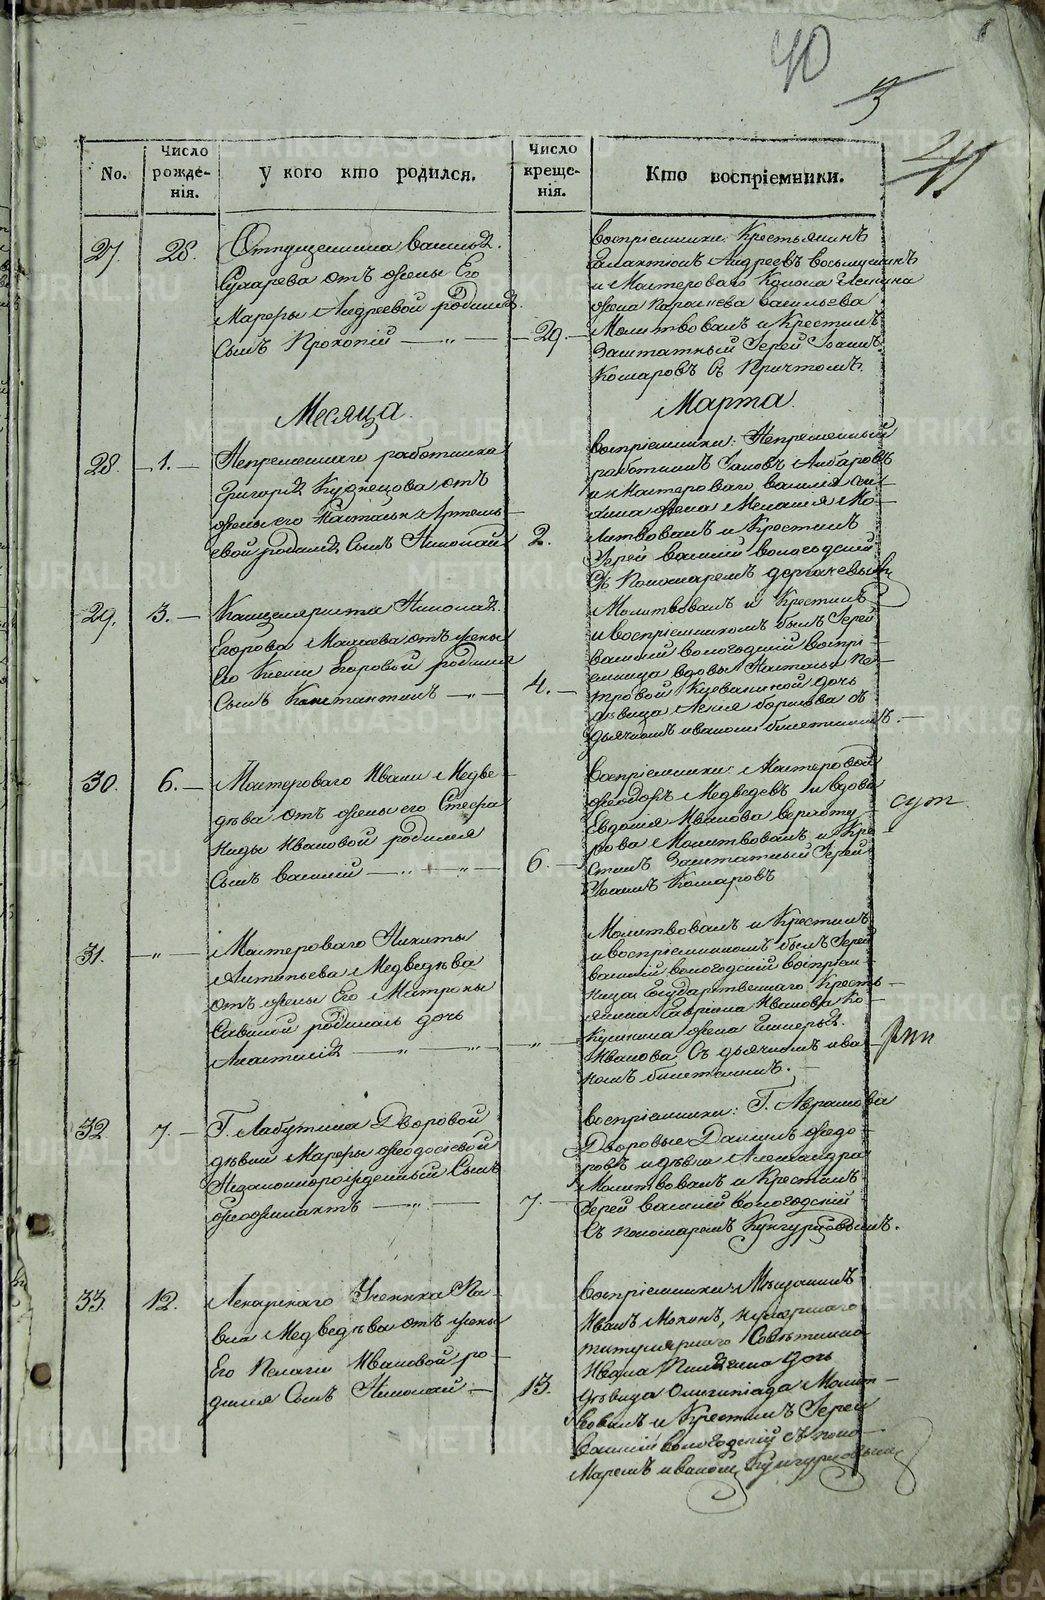 40
3
41
No.
Число рожде-нія.
У кого кто родился.
Число креще-нія.
Кто воспріемники.
27.
28.
Отпущенника Василья
Сухарева отъ жены Его
Марфы Андреевой родился
Сынъ Прокопій
29
воспріемники: Крестьянинъ
Галактіонъ Андреевъ
и Мастероваго
жена Васильева
Молитвовалъ и Крестилъ
Заштатный Іерей Іоаннъ
Комаровъ съ Причтомъ.
Месяца
Марта.
28.
1.
Непременнаго работника
Григорья Кузнецова отъ
жены его Настасьи Артемь-
евой родился Сынъ Николай
2.
воспріемники: Непременный
работникъ
и Мастероваго Василія
жена Меланія Мо-
литвовалъ и Крестилъ
Іерей Василій Вологодскій
Съ Пономаремъ
29.
3.
Канцеляриста Николая
Егорова отъ жены
Его Ксеніи Егоровой родился
Сынъ Константинъ
4.
Молитвовалъ и Крестилъ
и воспріемникомъ былъ Іерей
Василій Вологодскій воспрі-
емница вдовы Настасьи Пе-
тровой дочь
девица съ
дьячкомъ Иваномъ
30.
6.
Мастероваго Ивана Медве-
дева отъ жены его Стефа
ниды Ивановой родился
Сынъ Василій
6.
воспріемники: Мастеровой
Феодоръ Медведевъ и вдова
Евдокія Иванова
Молитвовалъ и Кре-
стилъ Заштатный Іерей
Іоаннъ Комаровъ
31.
Мастероваго Никиты
Антипьева Медведева
отъ жены Его Матроны
Савиной родилась дочь
Анастасія
Молитвовалъ и Крестилъ
и воспріемникомъ былъ Іерей
Василій Вологодскій воспріем-
ница Государственнаго Кресть-
янина Гавріила Иванова Ко-
жена
Иванова Съ дьячкомъ Ива
номъ
32
7.
Г. Лабутина Дворовой
девки Марфы Феодосіевой
Незаконнорожденный Сынъ
Феофилактъ
7.
воспріемники: Г. Абрамова
Дворовые Даніилъ Федо-
ровъ и девка Александра
Молитвовалъ и Крестилъ
Іерей Василій Вологодскій
Съ пономаремъ Кунгурцовымъ.
33.
12.
Лекарскаго Ученика Па-
вла Медведева отъ жены
Его Пелагіи Ивановой ро-
дился Сынъ Николай
13.
воспріемники: Мещанинъ
Иванъ и умершаго
титулярнаго Советника
Ивана дочь
девица Олимпіада Молит-
вовалъ и Крестилъ Іерей
Василій Вологодскій съ поно-
маремъ Иваномъ Кунгурцовымъ